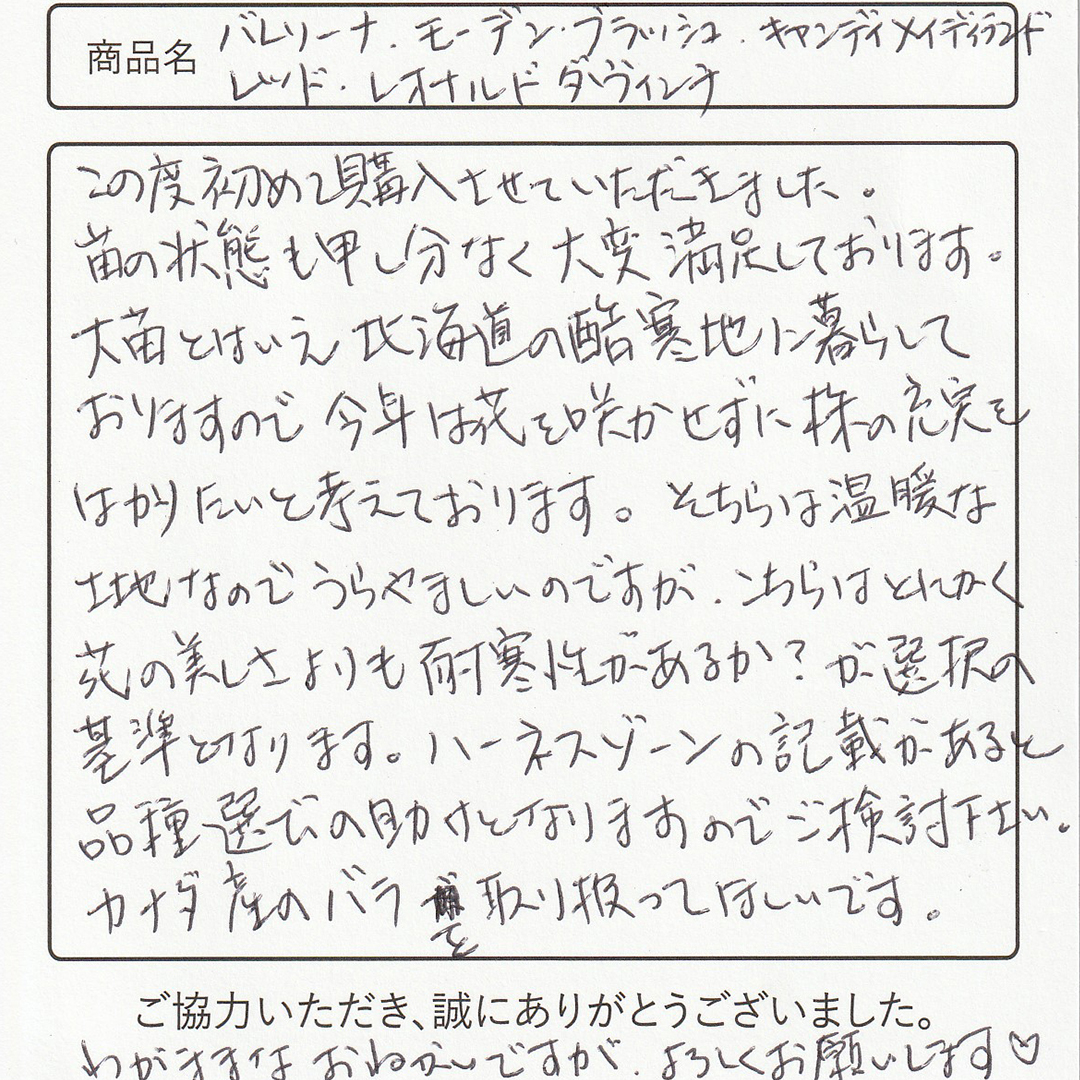 商品名
バレリーナ．モーデン・ブラッシュ．キャンディメイディランド
レッド．レオナルド ダヴィンチ
この度初めて購入させていただきました。
苗の状態も申し分なく大変満足しております。
大苗とはいえ北海道の酷寒地に暮らして
おりますので今年は花を咲かせずに株の充実を
はかりたいと考えております。そちらは温暖な
土地なのでうらやましいのですが．こちらはとにかく
花の美しさよりも耐寒性があるか？が選択の
基準となります。ハーネスゾーンの記載があると
品種選びの助けとなりますのでご検討下さい。
カナダ産のバラを取り扱ってほしいです。
ご協力いただき、誠にありがとうございました。
わがままなおねがいですが．よろしくお願いします♡